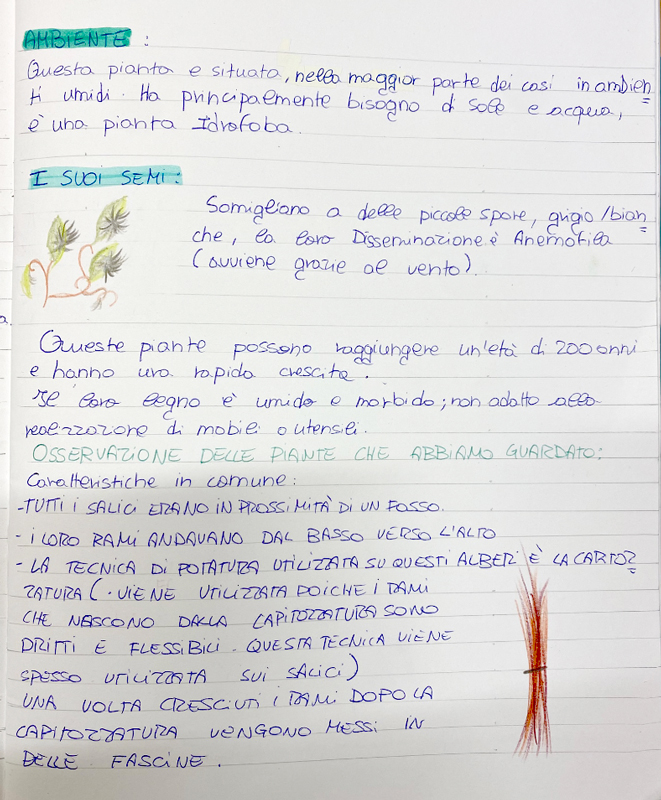 AMBIENTE :
Questa pianta e situata, nella maggior parte dei casi in ambien
ti umidi. Ha principalmente bisogno di sole e acqua,
è una pianta Idrofoba.
I SUOI SEMI :
Somigliano a delle piccole spore, grigio/bian
che, la loro Disseminazione è Anemofila
(avviene grazie al vento).
a.
Queste piante possono raggiungere un'età di 200 anni
e hanno una rapida crescita.
Il loro legno è umido e morbido; non adatto alla
realizzazione di mobili o utensili.
OSSERVAZIONE DELLE PIANTE CHE ABBIAMO GUARDATO:
Caratteristiche in comune:
-TUTTI I SALICI ERANO IN PROSSIMITÀ DI UN FOSSO.
- I LORO RAMI ANDAVANO DAL BASSO VERSO L'ALTO
- LA TECNICA DI POTATURA UTILIZZATA SU QUESTI ALBERI È LA CAPITOZ
ZATURA (. VIENE UTILIZZATA POICHE I RAMI
CHE NASCONO DALLA CAPITOZZATURA SONO
DRITTI E FLESSIBILI. QUESTA TECNICA VIENE
SPESSO UTILIZZATA SUI SALICI)
UNA VOLTA CRESCIUTI I RAMI DOPO LA
CAPITOZZATURA VENGONO MESSI IN
DELLE FASCINE.